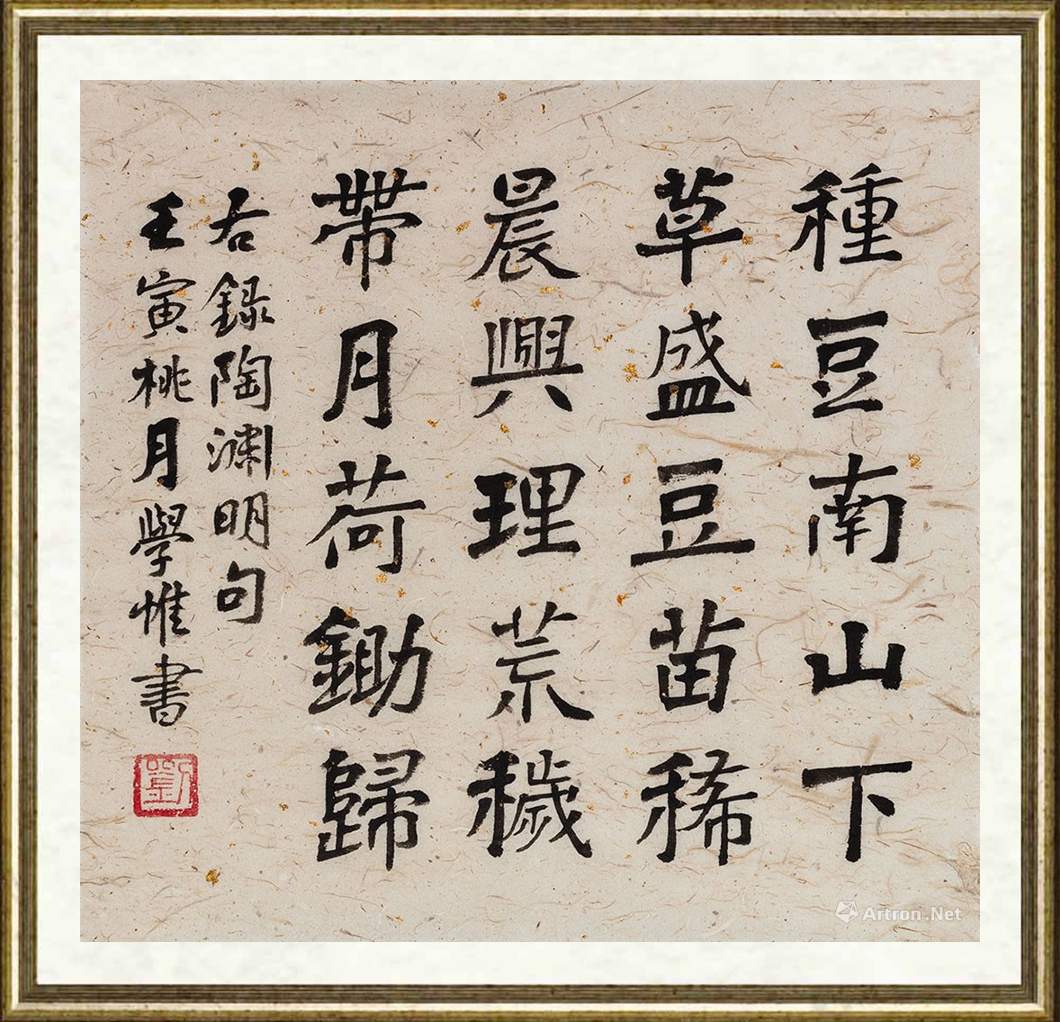 種豆南山下
草盛豆苗稀
晨興理荒穢
帶月荷鋤歸
右錄陶淵明句
壬寅桃月學惟書
劉
Artron.Net